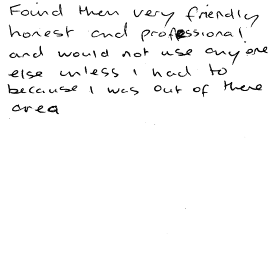 Found them very friendly
honest and professional
and would not use any one
else unless I had to
because I was out of there
area